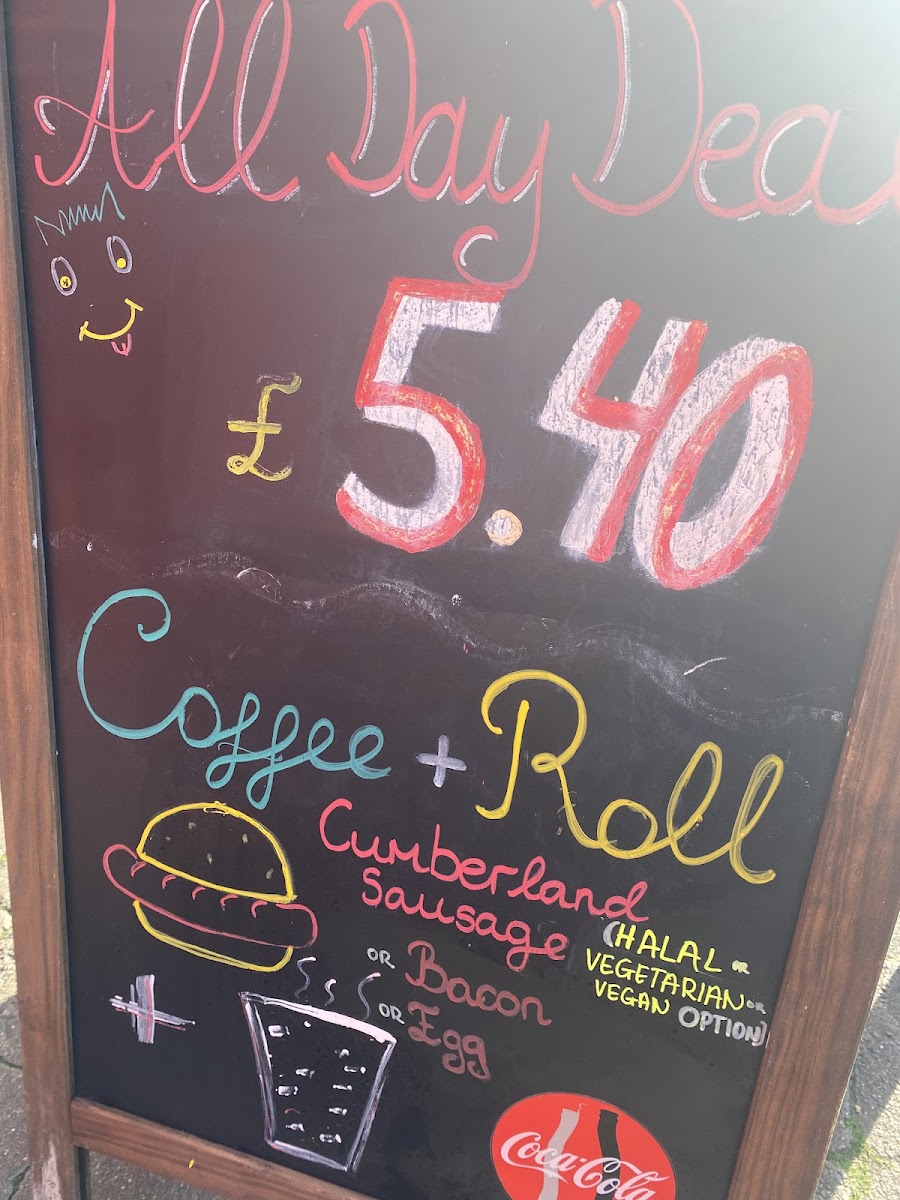 All Day Deal
£ 5.40
Coffee + Roll
Cumberland
Sausage
(HALAL OR
VEGETARIAN OR
VEGAN OPTION)
OR Bacon
OR Egg
+
Coca-Cola